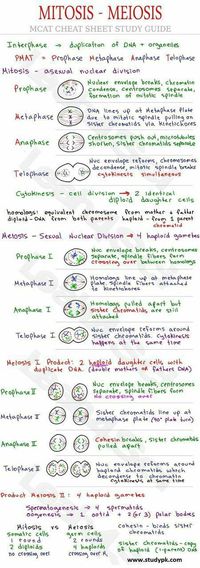 MITOSIS - MEIOSIS
MCAT CHEAT SHEET STUDY GUIDE
Interphase → duplication of DNA + organelles
PMAT = Prophase Metaphase Anaphase Telophase
Mitosis - asexual nuclear division
Prophase
Nuclear envelope breaks, chromatin
condense, centrosomes separate,
formation of mitotic spindle
Metaphase
DNA lines up at Metaphase Plate
due to mitotic spindle pulling on
Sister Chromatids via kinetochores
Anaphase
Centrosomes push out, microtubules
shorten, sister chromatids separate
Telophase
Nuc envelope reforms, chromosomes
decondense, mitotic spindle breaks
cytokinesis simultaneous
Cytokinesis - cell division → 2 identical
diploid daughter cells
homologs: equivalent chromosome from mother + father
diploid - DNA from both parents haploid - from 1 parent
chromatid
Meiosis - Sexual Nuclear Division → 4 haploid gametes
Prophase I
Nuc envelope breaks, centrosomes
separate, spindle fibers form
crossing over between homologs
Metaphase I
Homologs line up at metaphase
plate. Spindle fibers attached
to kinetochores
Anaphase I
Homologs pulled apart but
sister chromatids are still
attached
Telophase I
Nuc envelope reforms around
sister chromatids. Cytokinesis
happens at the same time
Meiosis I Product: 2 haploid daughter cells with
duplicate DNA (double mothers or fathers DNA)
Prophase II
Nuc envelope breaks, centrosomes
separate, spindle fibers form
no crossing over
Metaphase II
Sister chromatids line up at
metaphase plate (90° plate turn)
Anaphase II
Cohesin breaks, sister chromatids
pulled apart
Telophase II
Nuc envelope reforms around
haploid chromatids which
decondense to chromatin.
Cytokinesis at same time
Product Meiosis II: 4 haploid gametes
Spermatogenesis → 4 spermatids
oogenesis → 1 ootid + 2 (or 3) polar bodies
Mitosis vs Meiosis
Somatic cells germ cells
1 round 2 rounds
2 diploids 4 haploids
no crossing over crossing over PI
cohesin - binds sister
chromatids
Sister chromatids - copy
of haploid (1-parent) DNA
www.studypk.com